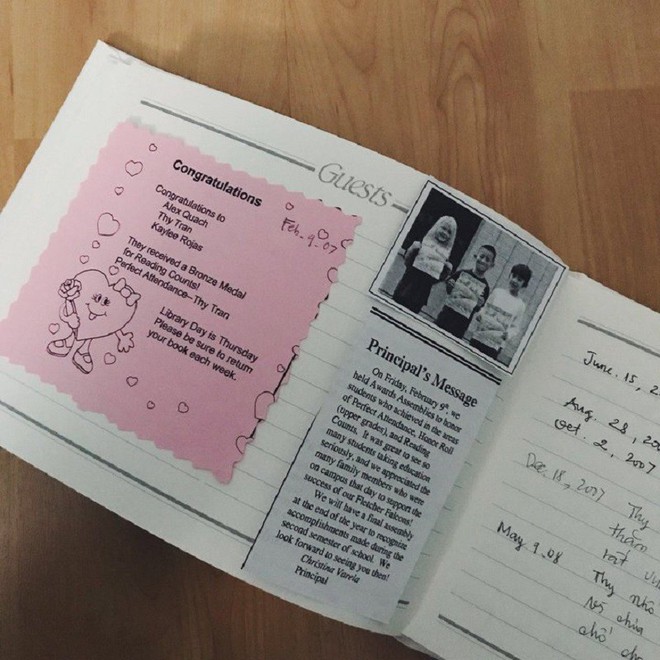 Guests
Congratulations
Feb. 9. 07
Congratulations to
Alex Quach
Thy Tran
Kaylee Rojas
They received a Bronze Medal
for Reading Counts!
Perfect Attendance–Thy Tran
Library Day is Thursday
Please be sure to return
your book each week.
Principal's Message
On Friday, February 9th, we
held Awards Assemblies to honor
students who achieved in the areas
of Perfect Attendance, Honor Roll
(upper grades), and Reading
Counts. It was great to see so
many students taking education
seriously, and we appreciated the
many family members who were
on campus that day to support the
success of our Fletcher Falcons!
We will have a final assembly
at the end of the year to recognize
accomplishments made during the
second semester of school. We
look forward to seeing you then!
Christina
Principal
June. 15, 2
Aug. 28, 200
Oct. 2, 2007
Dec. 18, 2007 Thy
May. 9. 08 Thy nhõ
chó